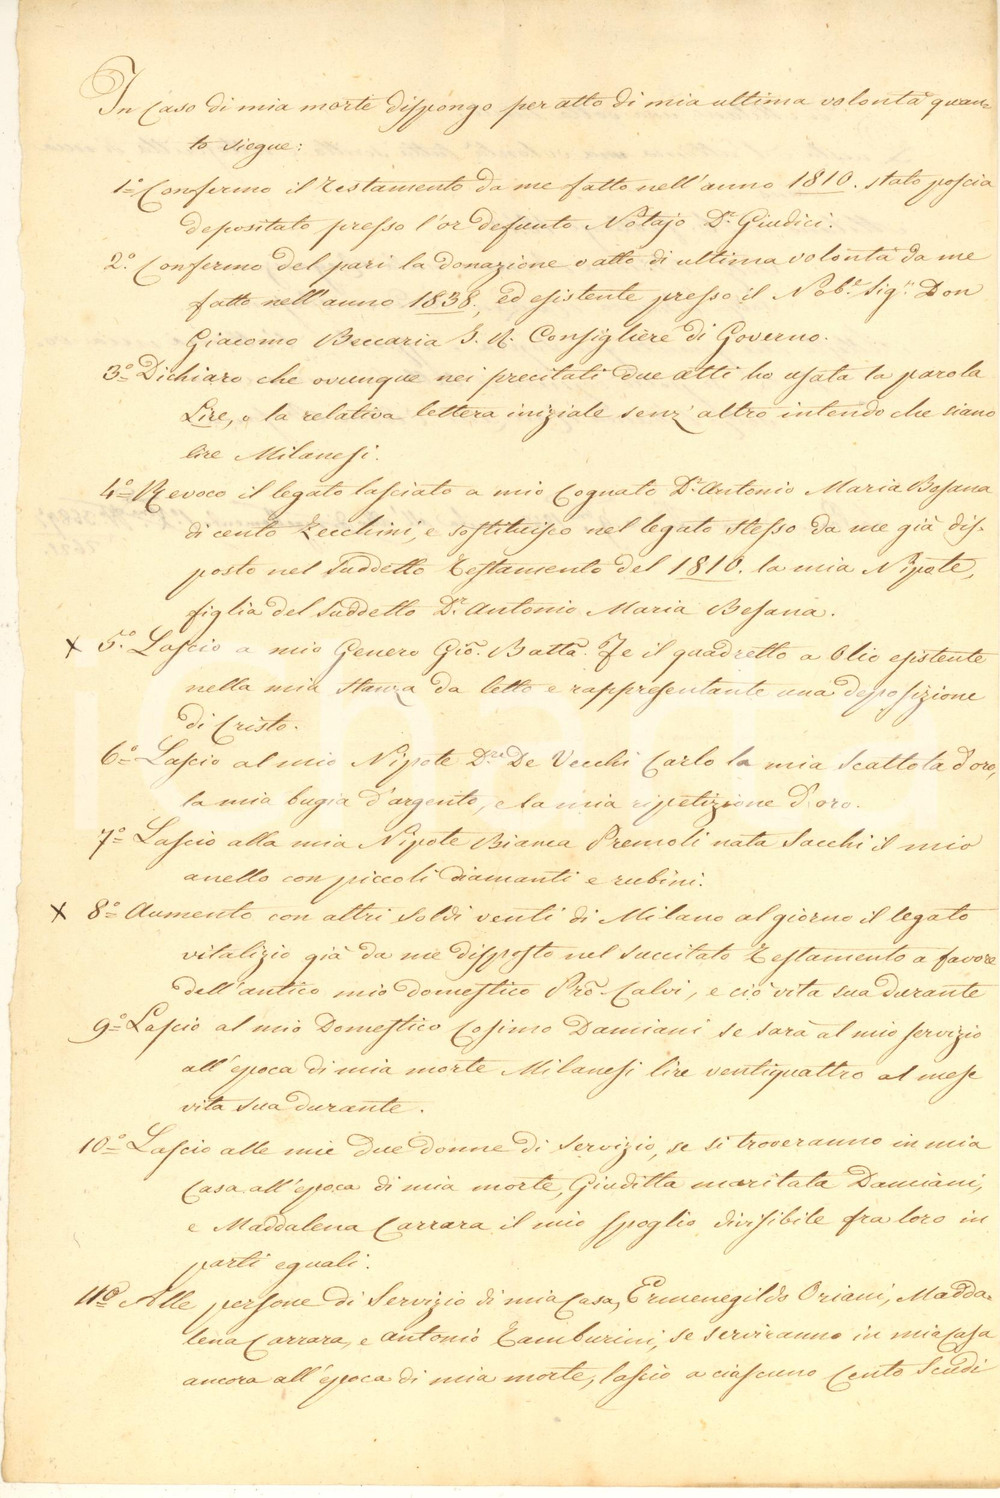 In caso di mia morte dispongo per atto di mia ultima volontà quan-
to siegue:
1.° Confermo il Testamento da me fatto nell'anno 1810. stato poscia
depositato presso l'or defunto Notajo D.r Giudici.
2.° Confermo del pari la donazione o atto di ultima volontà da me
fatto nell'anno 1838, ed esistente presso il Nob.e Sig.r Don
Giacomo Beccaria I. R. Consigliere di Governo.
3.° Dichiaro che ovunque nei precitati due atti ho usata la parola
Lire, o la relativa lettera iniziale senz'altro intendo che siano
lire Milanesi.
4.° Revoco il legato lasciato a mio Cognato D.r Antonio Maria Besana
di cento Zecchini, e sostituisco nel legato stesso da me già dis-
posto nel suddetto Testamento del 1810. la mia Nipote,
figlia del suddetto D.r Antonio Maria Besana.
x 5.° Lascio a mio Genero Gio. Batta. Fe il quadretto a Olio esistente
nella mia stanza da letto e rappresentante una deposizione
di Cristo.
6.° Lascio al mio Nipote D.re De Vecchi Carlo la mia Scattola d'oro,
la mia bugia d'argento, e la mia ripetizione d'oro.
7.° Lascio alla mia Nipote Bianca Premoli nata Sacchi il mio
anello con piccoli diamanti e rubini.
x 8.° Aumento con altri soldi venti di Milano al giorno il legato
vitalizio già da me disposto nel succitato Testamento a favore
dell'antico mio domestico Pro. Calvi, e ciò vita sua durante
9.° Lascio al mio Domestico Cosimo Damiani se sarà al mio servizio
all'epoca di mia morte Milanesi lire ventiquattro al mese
vita sua durante.
10.° Lascio alle mie due donne di servizio, se si troveranno in mia
Casa all'epoca di mia morte, Giuditta maritata Damiani,
e Maddalena Carrara il mio spoglio divisibile fra loro in
parti eguali.
11.° Alle persone di Servizio di mia Casa, Ermenegildo Oriani, Madda-
lena Carrara, e Antonio Tamburini, se serviranno in mia casa
ancora all'epoca di mia morte, lascio a ciascuno Cento Scudi